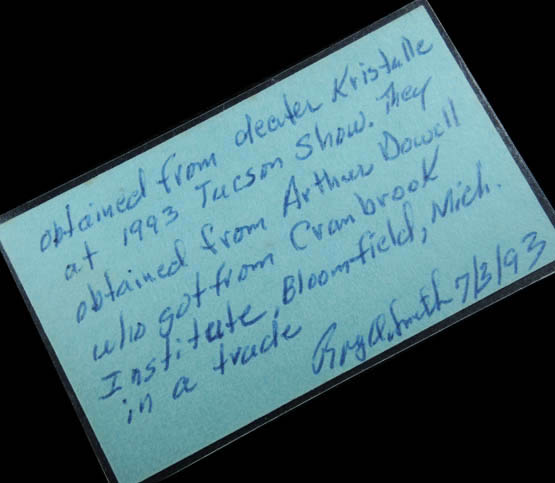 obtained from dealer Kristalle
at 1993 Tucson Show. They
obtained from Arthur Dowell
who got from Cranbrook
Institute, Bloomfield, Mich.
in a trade
Roy A. Smith 7/3/93